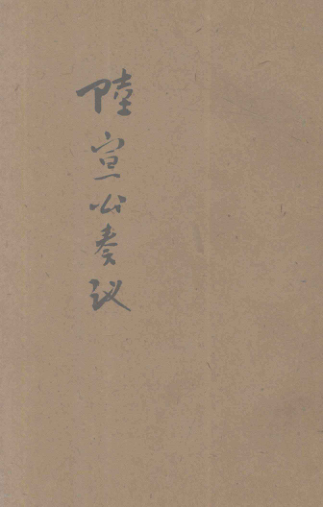 陸宣公奏议